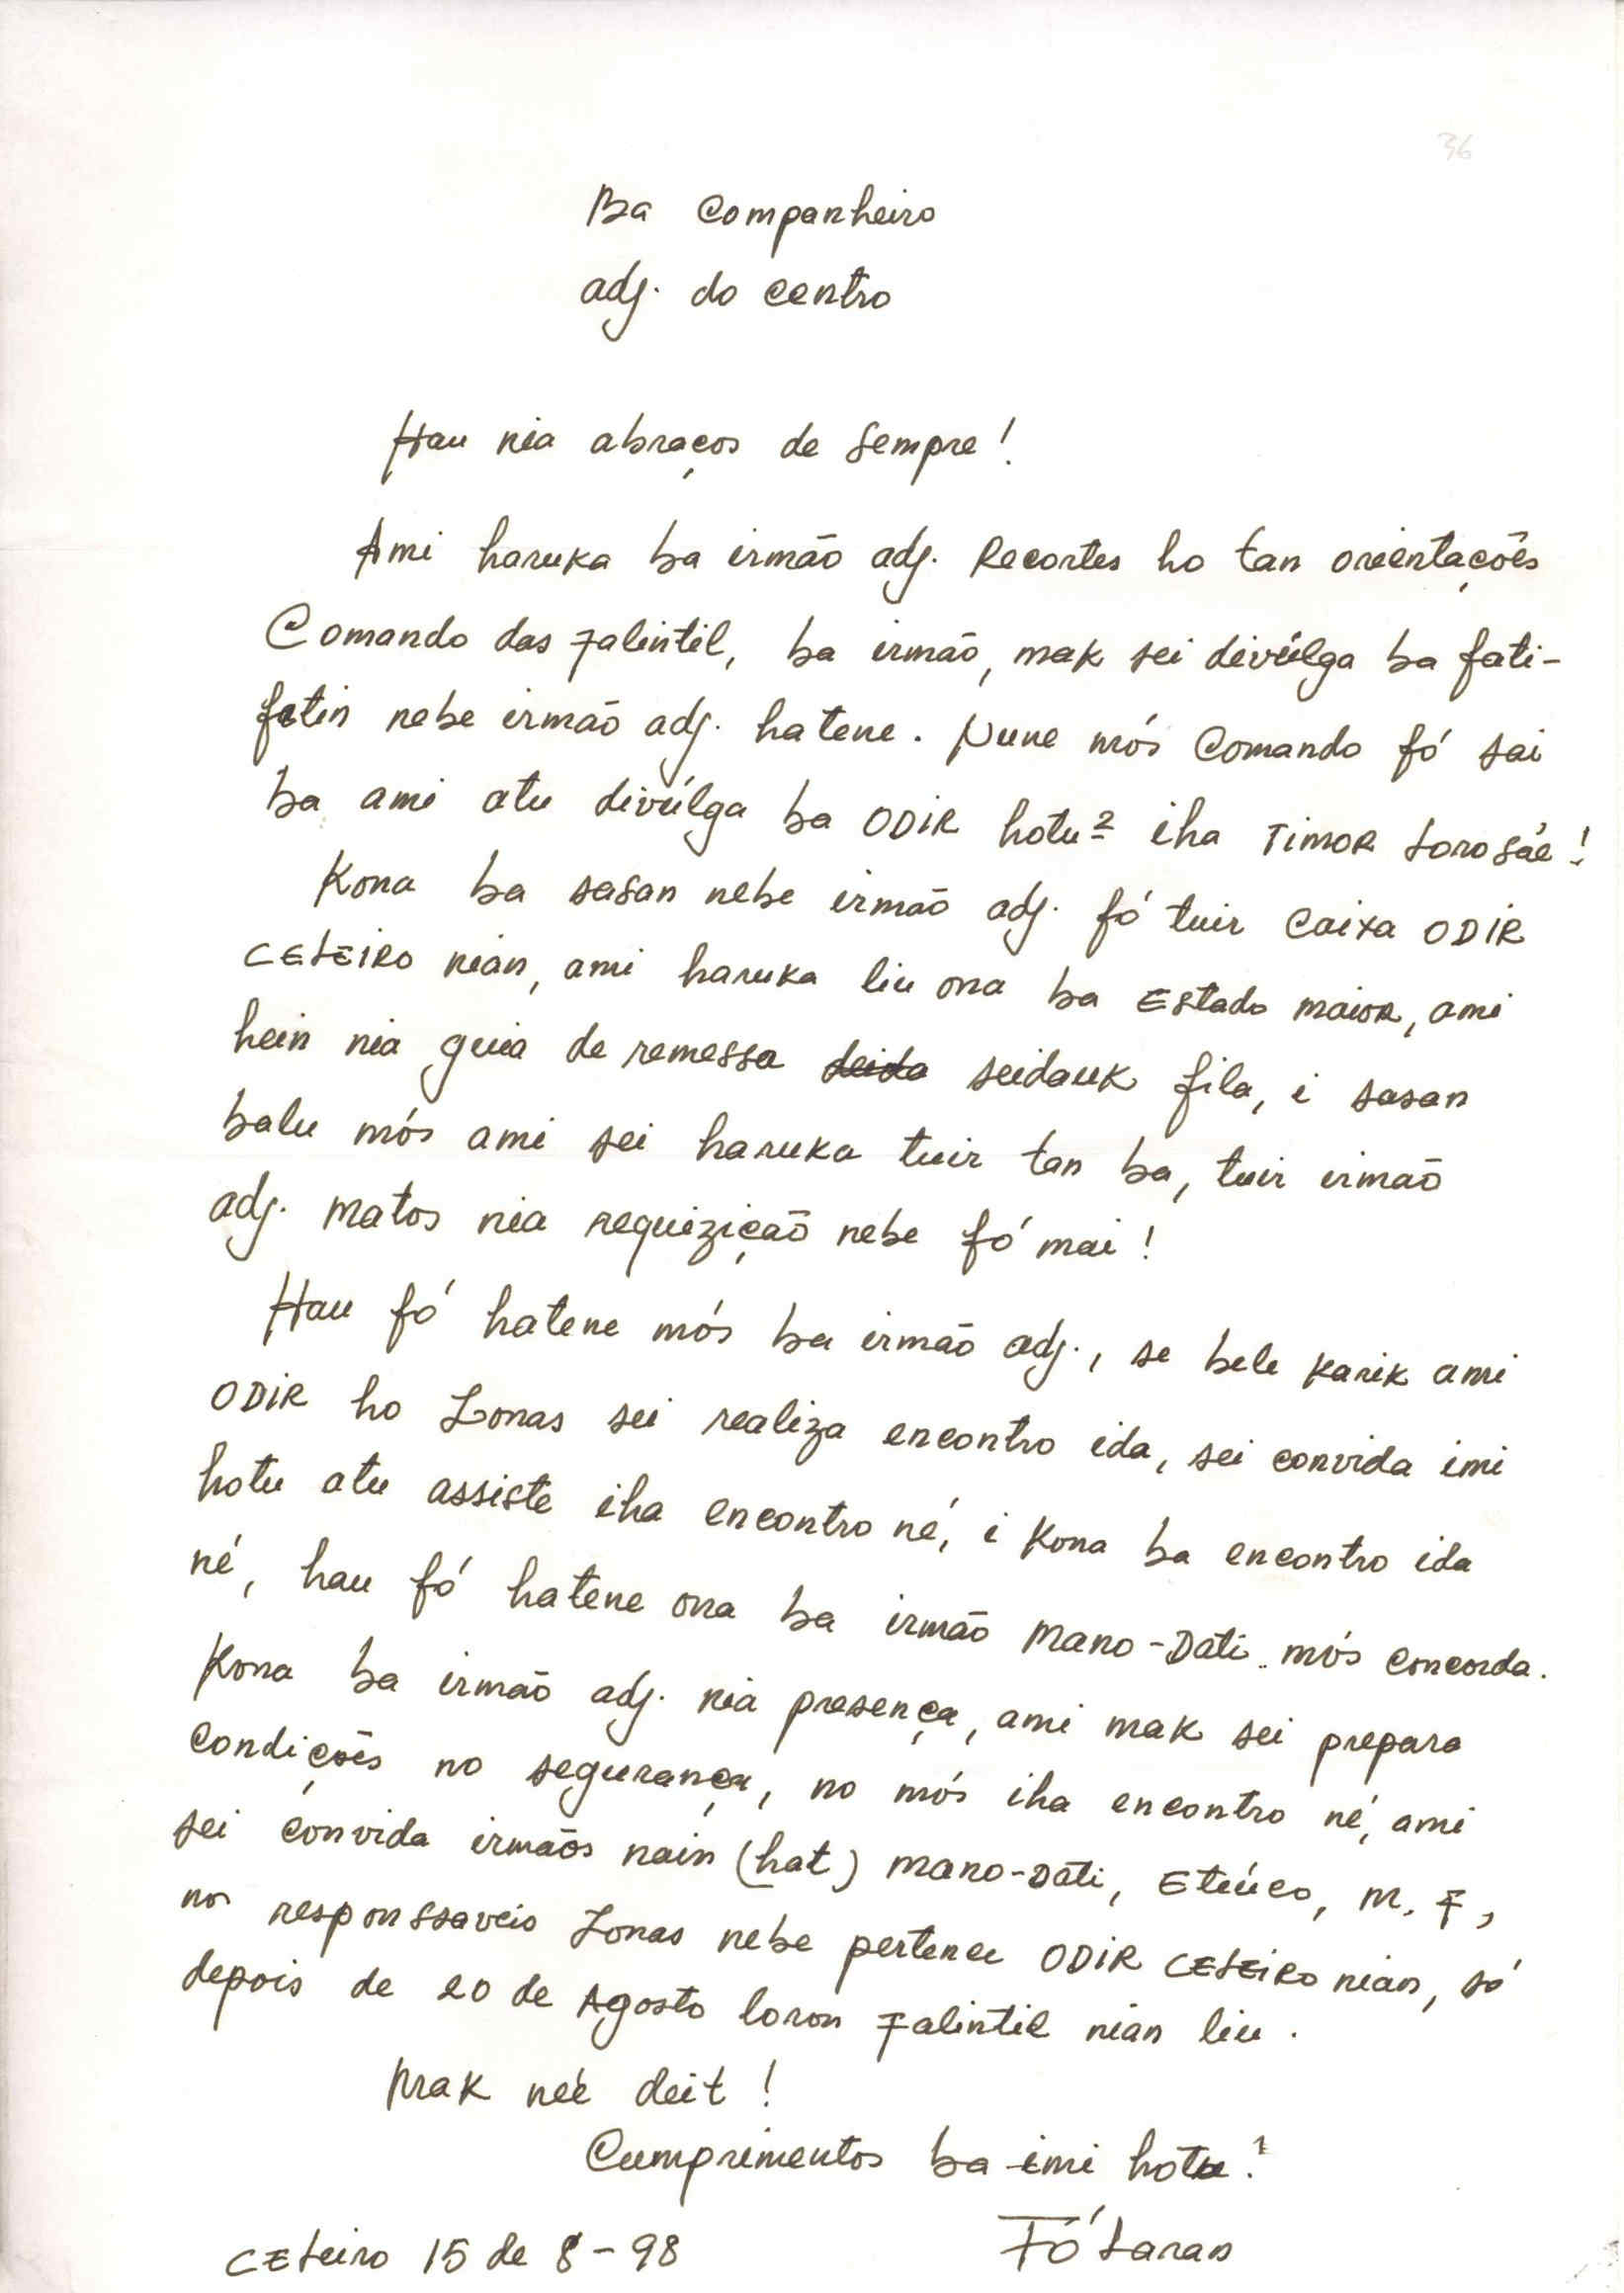 36
Ba Companheiro
adj. do centro
Hau nia abraços de sempre!
Ami haruka ba irmão adj. Recortes ho tan orientações
Comando das Falintil, ba irmão, mak sei divúlga ba fati-
fatin nebe irmão adj. hatene. Nune mós Comando fó sai
ba ami atu divúlga ba ODIR hotu2 iha TIMOR Lorosáe!
Kona ba sasan nebe irmão adj. fó tuir Caixa ODIR
CELEIRO nian, ami haruka liu ona ba Estado maior, ami
hein nia guia de remessa deida seidauk fila, i sasan
balu mós ami sei haruka tuir tan ba, tuir irmão
adj. Matos nia requizição nebe fó mai!
Hau fó hatene mós ba irmão adj., se bele karik ami
ODIR ho Zonas sei realiza encontro ida, sei convida imi
hotu atu assiste iha encontro né, i kona ba encontro ida
né, hau fó hatene ona ba irmão Mano-Dati mós concorda.
Kona ba irmão adj. nia presença, ami mak sei prepara
Condições no segurança, no mós iha encontro né, ami
sei convida irmãos nain (hat) Mano-Dati, Etúco, M. F,
no responssaveis Zonas nebe pertence ODIR CELEIRO nian, só
depois de 20 de Agosto loron Falintil nian liu.
Mak neé deit!
Cumprimentos ba imi hotu!
Celeiro 15 de 8-98
Fó Laran